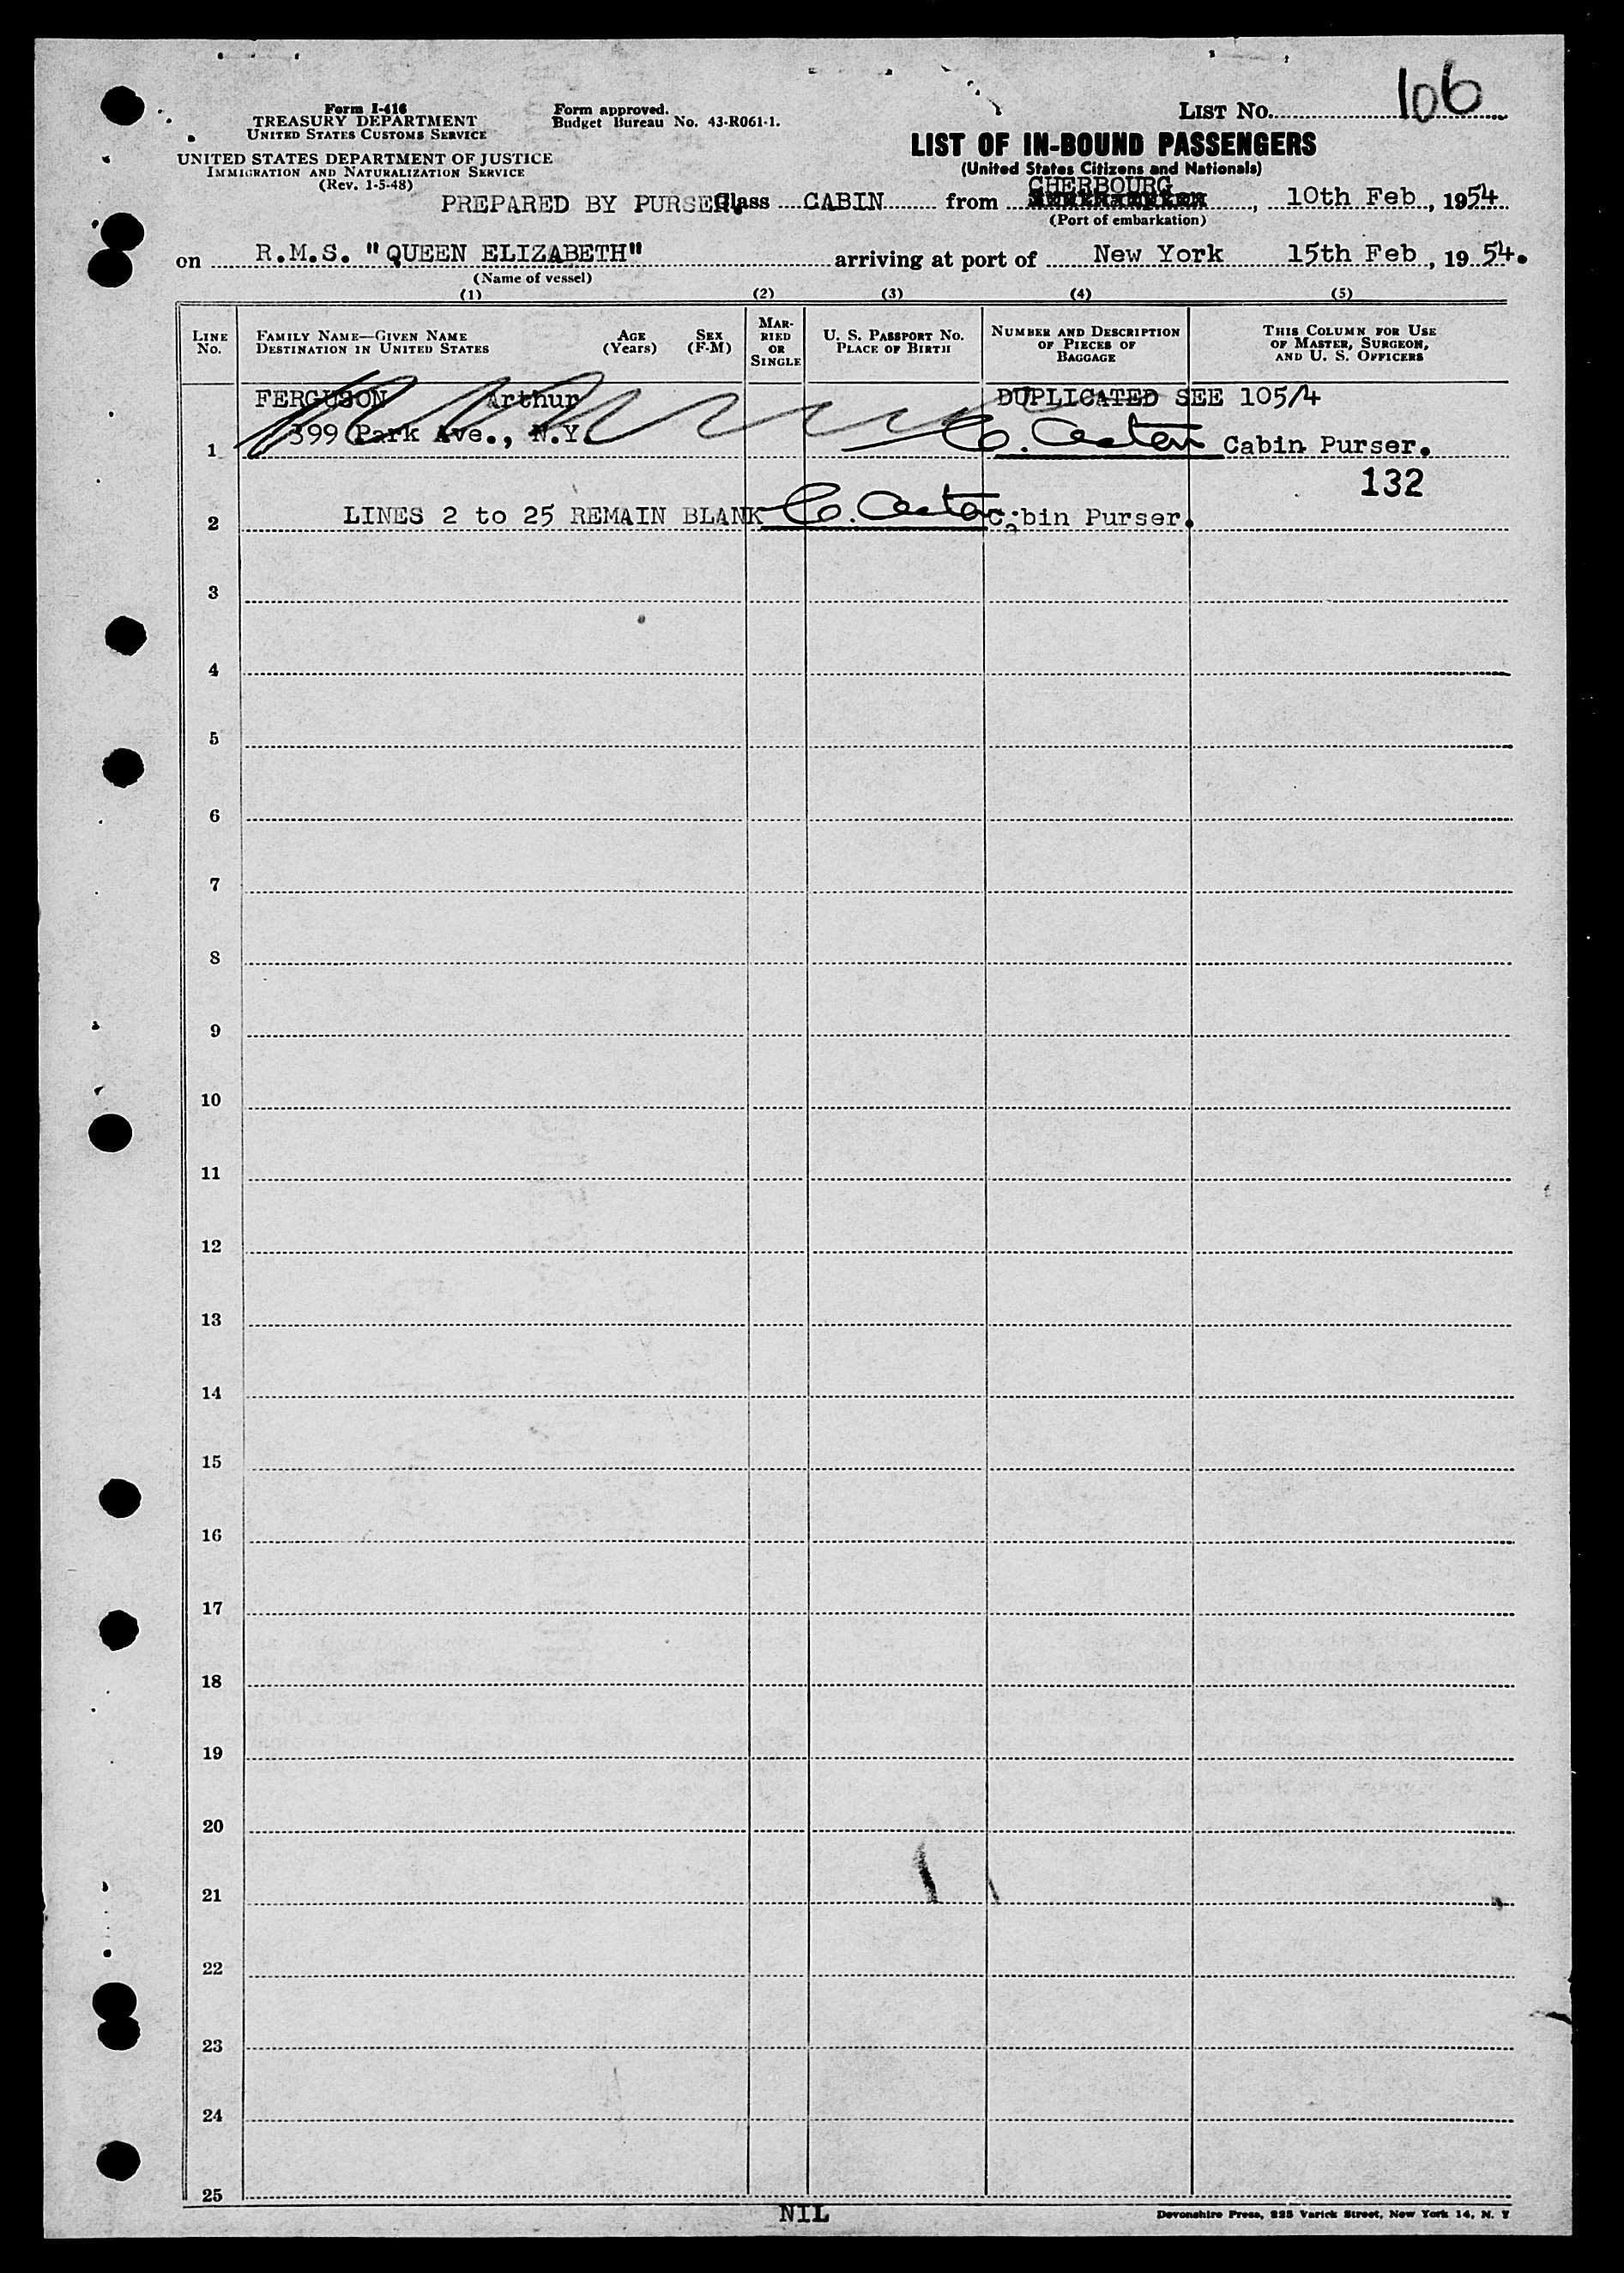 Form I-416
TREASURY DEPARTMENT
UNITED STATES CUSTOMS SERVICE
Form approved.
Budget Bureau No. 43-R061-1.
LIST NO. 106
UNITED STATES DEPARTMENT OF JUSTICE
IMMIGRATION AND NATURALIZATION SERVICE
(Rev. 1-5-48)
LIST OF IN-BOUND PASSENGERS
(United States Citizens and Nationals)
PREPARED BY PURSER. Class CABIN from CHERBOURG, 10th Feb, 1954
(Port of embarkation)
on R.M.S. "QUEEN ELIZABETH" arriving at port of New York 15th Feb, 19 54.
(Name of vessel)
(1) (2) (3) (4) (5)
LINE NO.
FAMILY NAME—GIVEN NAME
DESTINATION IN UNITED STATES
AGE (Years)
SEX (F-M)
MARRIED OR SINGLE
U. S. PASSPORT NO.
PLACE OF BIRTH
NUMBER AND DESCRIPTION
OF PIECES OF
BAGGAGE
THIS COLUMN FOR USE
OF MASTER, SURGEON,
AND U. S. OFFICERS
FERGUSON Arthur DUPLICATED SEE 105/4
1 399 Park Ave., N.Y. Cabin Purser.
132
2 LINES 2 to 25 REMAIN BLANK Cabin Purser.
3
4
5
6
7
8
9
10
11
12
13
14
15
16
17
18
19
20
21
22
23
24
25
NIL
Devonshire Press, 225 Varick Street, New York 14, N. Y.